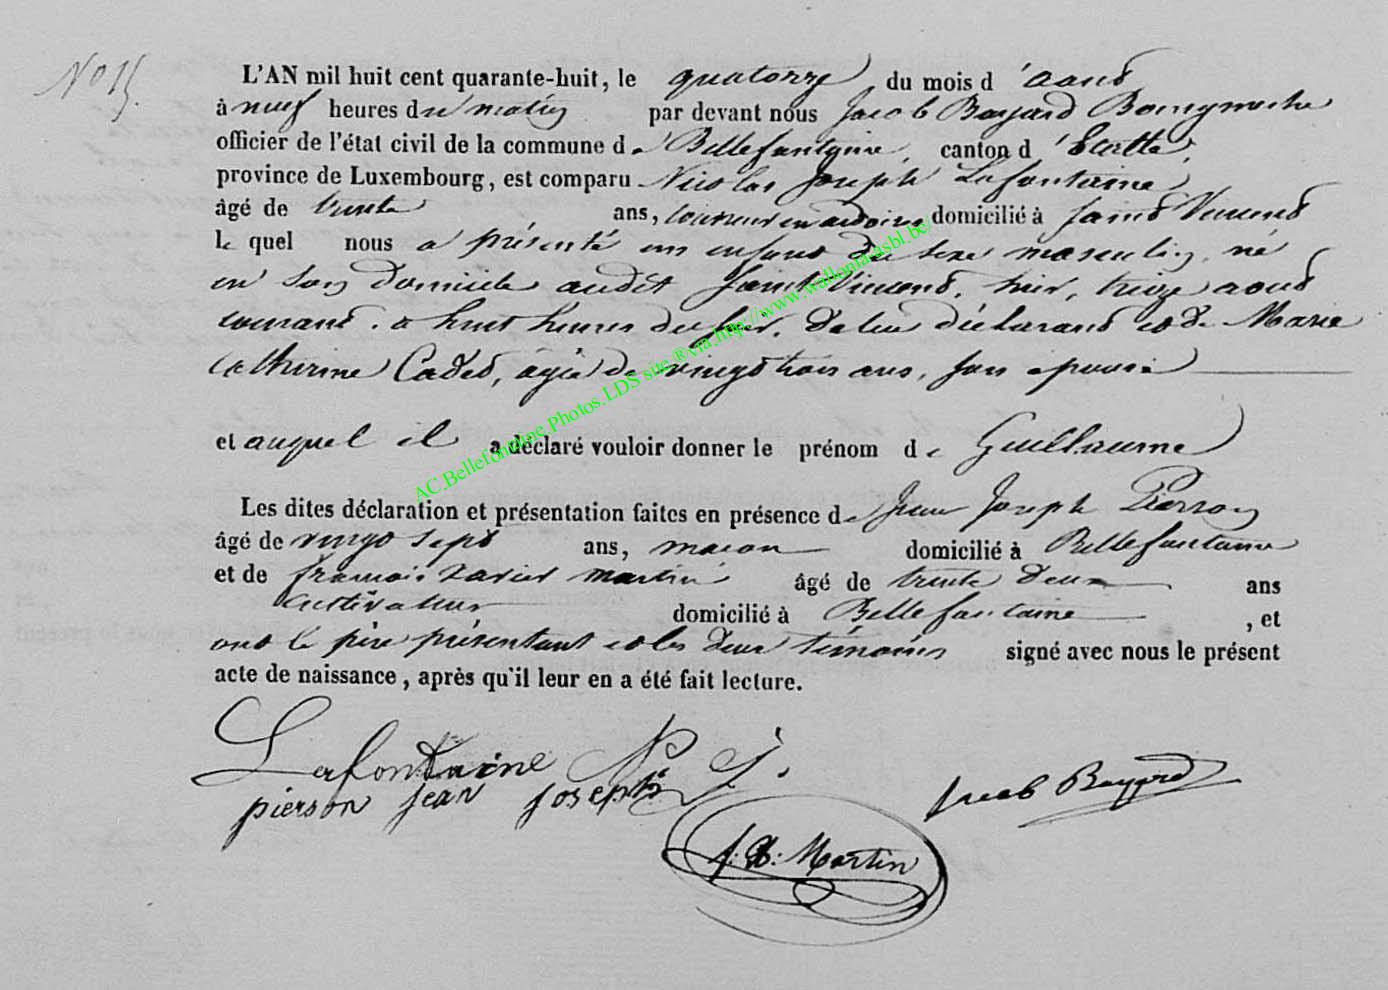 No 15.
L'AN mil huit cent quarante-huit, le quatorze du mois d'août
à neuf heures du matin par devant nous Jacob Bayard Bourgmestre
officier de l'état civil de la commune de Bellefontaine, canton d'Etalle,
province de Luxembourg, est comparu Nicolas Joseph Lafontaine
âgé de trente ans, couvreur en ardoises domicilié à Saint Vincent
le quel nous a présenté un enfant du sexe masculin, né
en son domicile audit Saint Vincent, hier, treize août
courant, à huit heures du soir, de lui déclarant et de Marie
Catherine Cadet, agée de vingt trois ans, son épouse
et auquel il a déclaré vouloir donner le prénom de Guillaume
Les dites déclaration et présentation faites en présence de Jean Joseph Pierson
âgé de vingt sept ans, maçon domicilié à Bellefontaine
et de françois Xavier martin âgé de trente deux ans
Cultivateur domicilié à Bellefontaine, et
ont le père présentant et les deux témoins signé avec nous le présent
acte de naissance, après qu'il leur en a été fait lecture.
Lafontaine N J.
pierson jean joseph
Jacob Bayard
f: X: Martin
AC.Bellefontaine.Photos.LDS site.®via.http://www.wallonia.asbl.be/